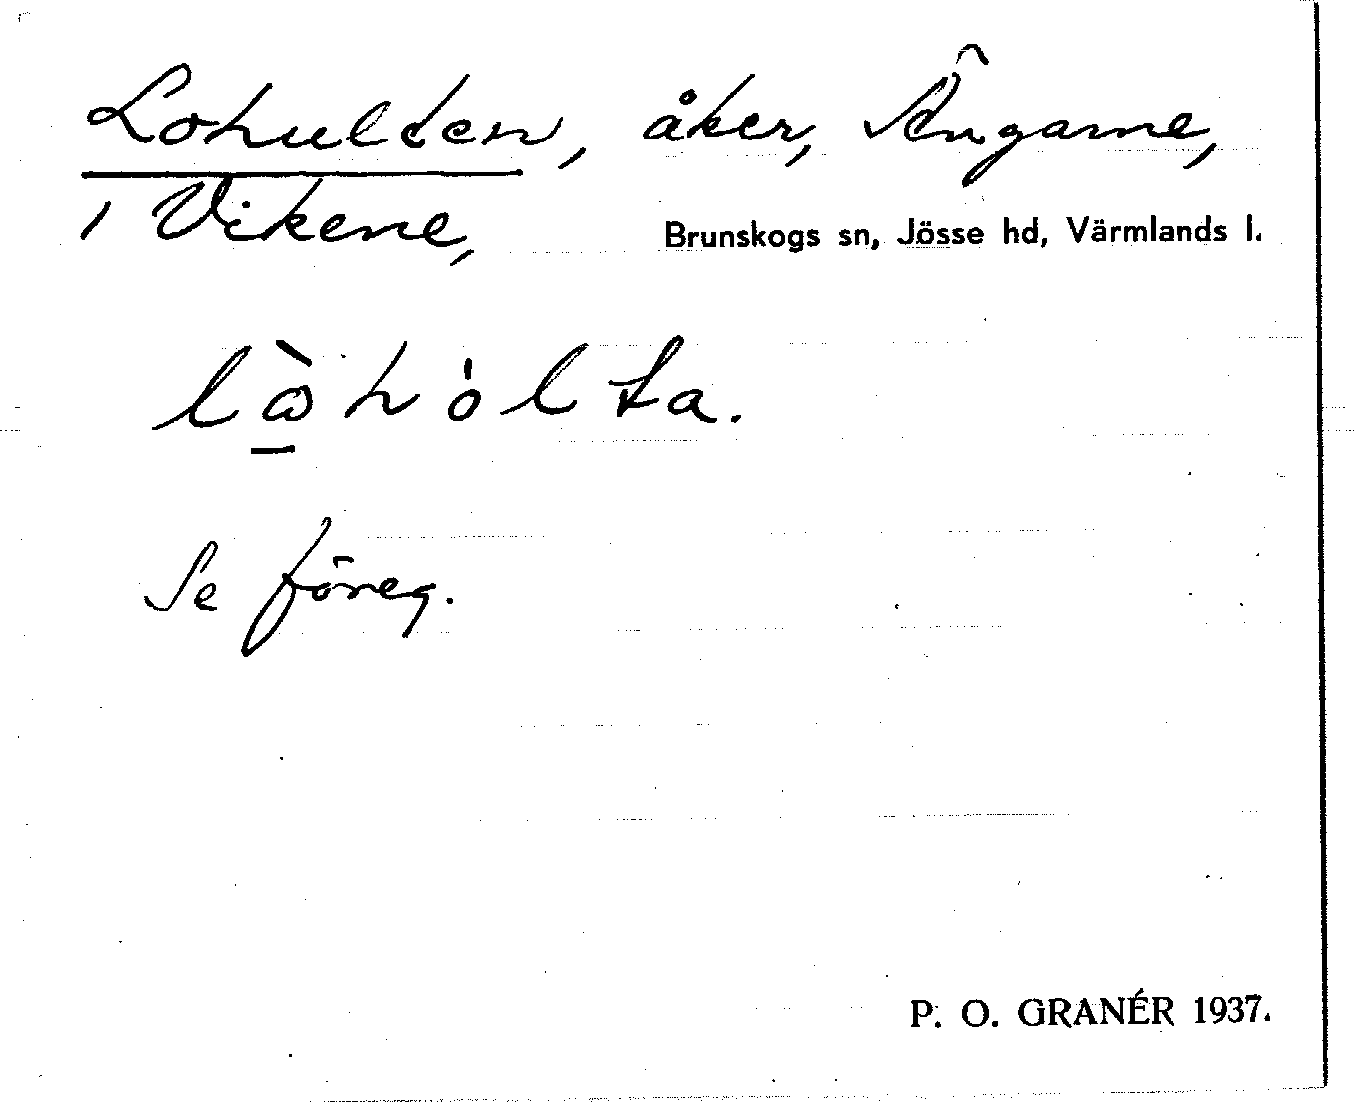 Lohulten, åker, Ängarne,
i Vikene, Brunskogs sn, Jösse hd, Värmlands l.
Se föreg.
P. O. GRANÉR 1937.